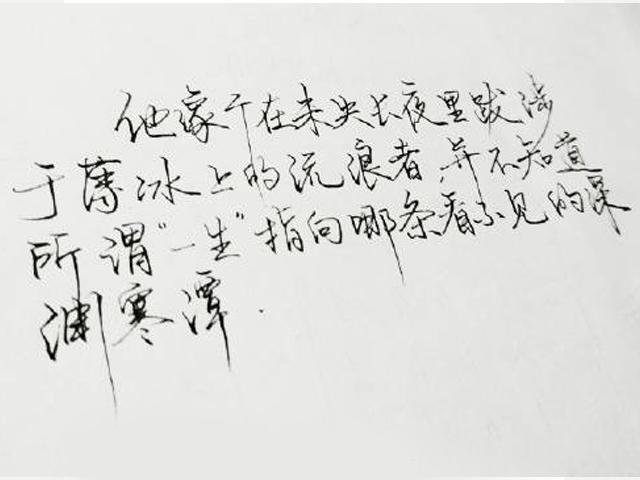 他像个在未央长夜里跋涉
于薄冰上的流浪者，并不知道
所谓“一生”指向哪条看不见的深
渊寒潭.